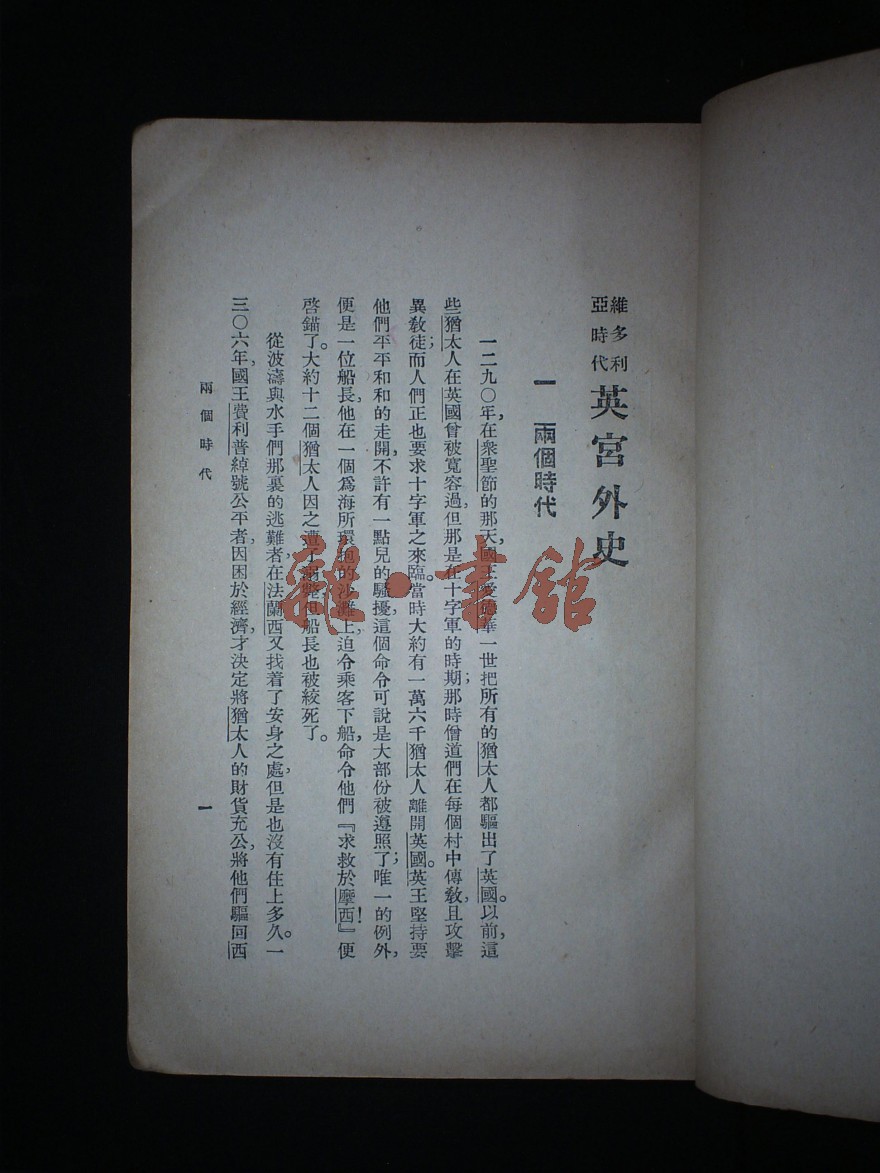 維多利
亞時代
英宮外史
一 兩個時代
一二九〇年，在衆聖節的那天，國王愛德華一世把所有的猶太人都驅出了英國。以前，這
些猶太人在英國曾被寬容過，但那是在十字軍的時期；那時僧道們在每個村中傳教，且攻擊
異敎徒；而人們正也要求十字軍之來臨。當時大約有一萬六千猶太人離開英國。英王堅持要
他們平平和和的走開，不許有一點兒的騷擾，這個命令可說是大部份被遵照了；唯一的例外，
便是一位船長，他在一個爲海所環抱的沙灘上，迫令乘客下船，命令他們『求救於摩西！』便
啓錨了。大約十二個猶太人因之遭了但船長也被絞死了。
從波濤與水手們那裏的逃難者，在法蘭西又找着了安身之處，但是也沒有住上多久。一
三〇六年，國王費利普綽號公平者，因困於經濟，才決定將猶太人的財貨充公，將他們驅回西
兩個時代
一
雜·書舘